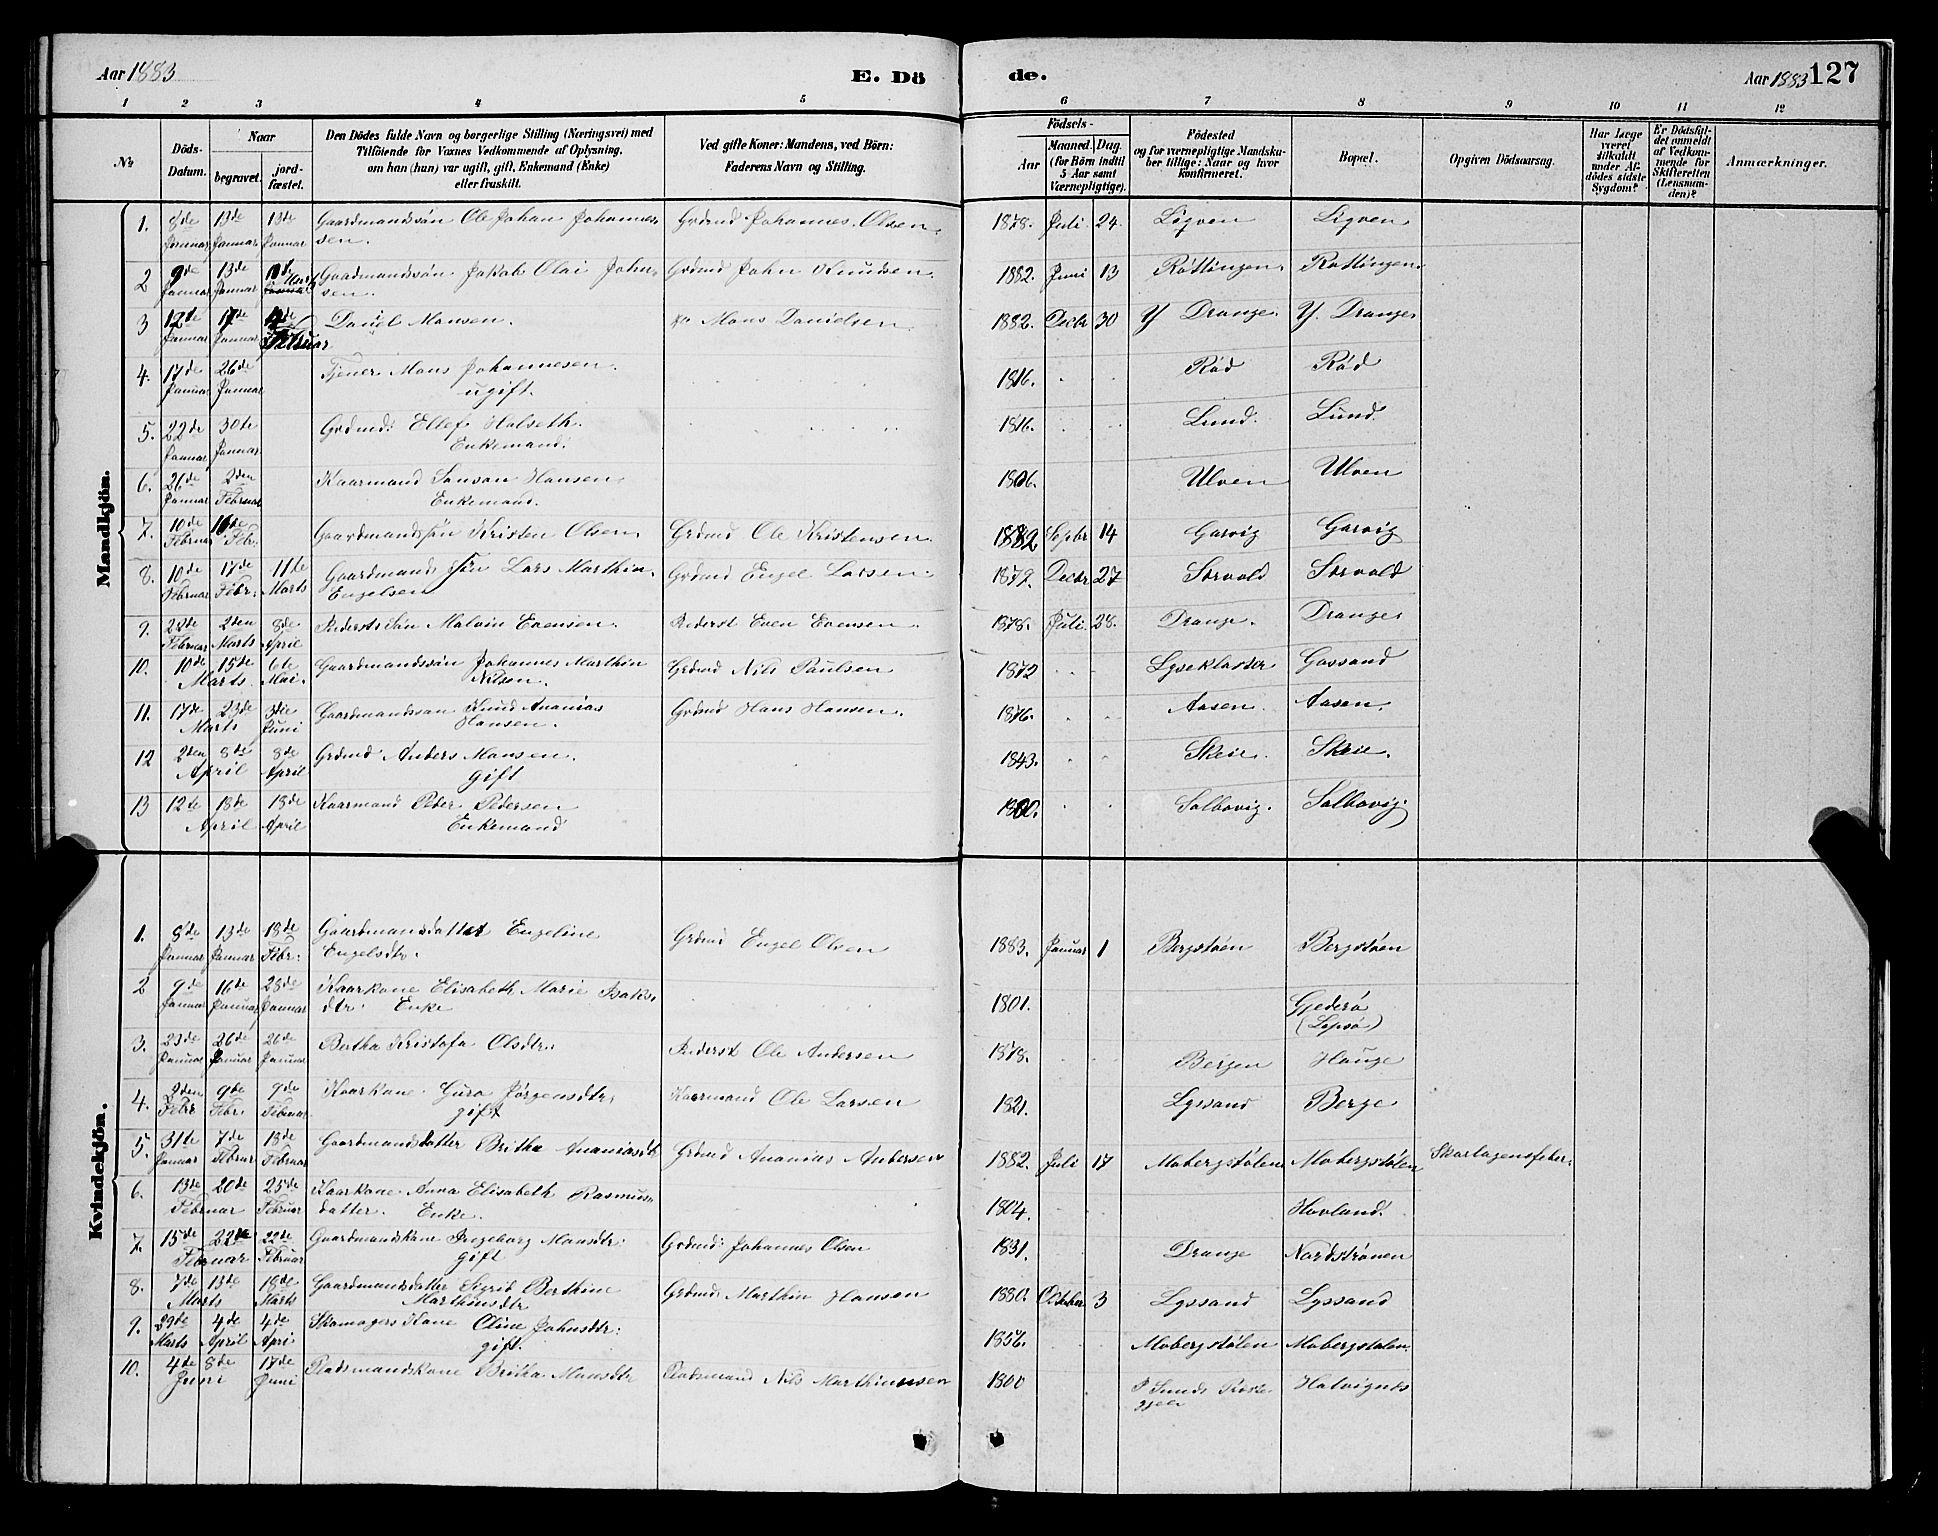 Aar 1883 E. Dö
de. Aar 1883 127
1 2 3 4 5 6 7 8 9 10 11 12
No
Döds-Datum.
Naar
begravet. jord-fæstet.
Den Dödes fulde Navn og borgerlige Stilling (Næringsvei) med
Tilföiende for Voxnes Vedkommende af Oplysning,
om han (hun) var ugift, gift, Enkemand (Enke)
eller fraskilt.
Ved gifte Koner: Mandens, ved Börn:
Faderens Navn og Stilling.
Födsels-
Aar Maaned. Dag.
(for Börn indtil
5 Aar samt
Værnepligtige).
Födested
og for værnepligtige Mandska-
ber tillige: Naar og hvor
konfirmeret.
Bopæl.
Opgiven Dödsaarsag.
Har Læge
været
tilkaldt
under Af-
dödes sidste
Sygdom?
Er Dödsfal-
det anmeldt
af Vedkom-
mende for
Skifteretten
(Lensman-
den)?
Anmærkninger.
Mandkjön.
1. 8de Januar 13de Januar 13de Januar Gaardmandssön Ole Johan Johannes- Grdmd Johannes Olsen. 1878. Juli 24. Ligven Ligven
sen.
2 9de Januar 13de Januar Gaardmandssön Jakob Olai John- Grdmd John Knudsen. 1882. Juni 13 Röttingen. Röttingen
sen.
3 12te Januar 17de Januar Februar Daniel Monsen. Mons Danielsen 1882. Decbr 30 Y Drange Y. Drange
4. 17de Januar 26de Januar Tjener Mons Johannesen. 1816. Röd Röd
ugift.
5. 22de Januar 30te Januar. Grdmd: Ellef Holseth. 1816. Lund. Lund.
Enkemand.
6. 26de Januar 2den Februar Kaarmand Hansen 1806. Ulven Ulven
Enkemand.
7. 10de Februar 16de Febr. Gaardmandssön Kristen Olsen Grdmd Ole Kristensen. 1882 Septbr 14 Garvig Garvig
8. 10de Februar 17de Febr: 11te Marts Gaardmandssön Lars Marthin Grdmd Engel Larsen. 1879. Decbr 27 Sörvold Sörvold
Engelsen
9. 22de Februar 2den Marts 8de April Inderstssön Malvin Evensen. Inderst Even Evensen. 1878. Juli 28. Drange. Drange
10. 10de Marts 15de 6te Mai. Gaardmandssön Johannes Marthin Grdmd Nils Paulsen 1872 Lyseklaster Gassand
Nilsen.
11. 17de Marts 23de 3die Juni Gaardmandssön Knud Ananias Grdmd Hans Hansen. 1876. Aasen. Aasen.
Hansen.
12 2den April 8de 8de April Grdmd Anders Monsen. 1843. Skeie. Skeie.
gift
13 12te April 18de 18de April Kaarmand Peder Pedersen 1800. Salbovig. Salbovig.
Enkemand
Kvindekjön.
1. 8de Januar 13de Januar 18de Febr: Gaardmandsdatter Engeline Grdmd Engel Olsen 1883. Januar 1 Bergstöen Bergstöen
Engelsdtr.
2 9de Januar 16de Januar 28de Januar Kaarkone Elisabeth Marie Isaks- 1801. Gjederö
dtr. Enke (Lepsö)
3. 23de Januar 26de Januar 26de Januar Bertha Kristofa Olsdtr. Inderst Ole Andersen 1878. Bergen Hauge
4. 2den Febr 9de Febr. 9de Februar Kaarkone Guro Jörgensdtr. Kaarmand Ole Larsen 1821. Lyssand Berge
gift
5. 31te Januar 7de Februar 18de Februar Gaardmandsdatter Britha Ananiasdtr Grdmd Ananias Andersen 1882. Juli 17 Mobergstölen Mobergstölen Skarlagensfeber.
6. 13de Februar 20de 25de Februar Kaarkone Anna Elisabeth Rasmus- 1804. Hovland.
datter. Enke.
7. 15de Februar 22de 22de Februar Gaardmandskone Ingeborg Monsdtr. Grdmd: Johannes Olsen 1831. Drange Nordströnen
gift
8. 7de Marts 13de 18de Marts Gaardmandsdatter Sigrid Berthine Grdmd: Marthin Hansen 1880. October 3 Lyssand Lyssand
Marthinsdtr
9. 29de Marts 4de April 4de April Skomagers Kone Oline Johnsdtr: 1856. Mobergstölen Mobergstölen
gift.
10. 4de Juni 8de 17de Juni Pladsmandskone Britha Monsdtr Pladsmand Nils Marthinussen 1800 Sunds Halvignæs